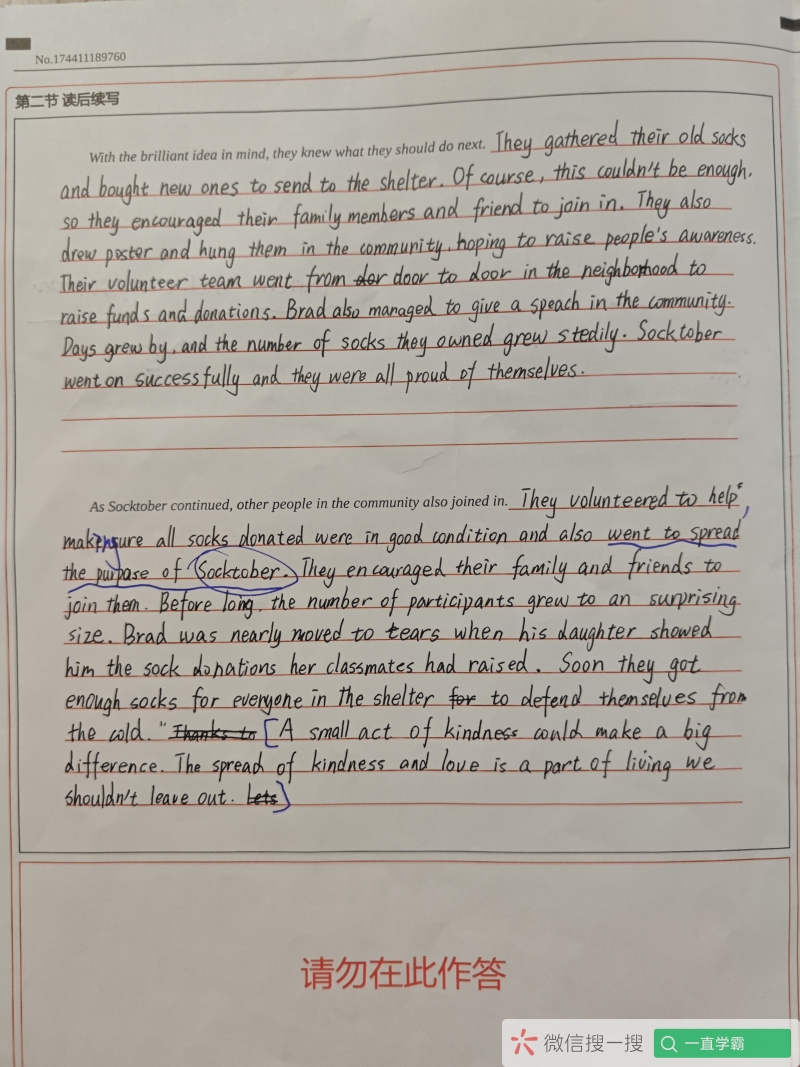 No.174411189760
第二节 读后续写
With the brilliant idea in mind, they knew what they should do next. They gathered their old socks
and bought new ones to send to the shelter. Of course, this couldn't be enough,
so they encouraged their family members and friend to join in. They also
drew poster and hung them in the community, hoping to raise people's awareness.
Their volunteer team went from door to door in the neighborhood to
raise funds and donations. Brad also managed to give a speach in the community.
Days grew by, and the number of socks they owned grew stedily. Socktober
went on successfully and they were all proud of themselves.
As Socktober continued, other people in the community also joined in. They volunteered to help,
make sure all socks donated were in good condition and also went to spread
the purpase of Socktober. They encouraged their family and friends to
join them. Before long, the number of participants grew to an surprising
size. Brad was nearly moved to tears when his daughter showed
him the sock donations her classmates had raised. Soon they got
enough socks for everyone in the shelter to defend themselves from
the cold. "A small act of kindness could make a big
difference. The spread of kindness and love is a part of living we
shouldn't leave out.
请勿在此作答
微信搜一搜 一直学霸